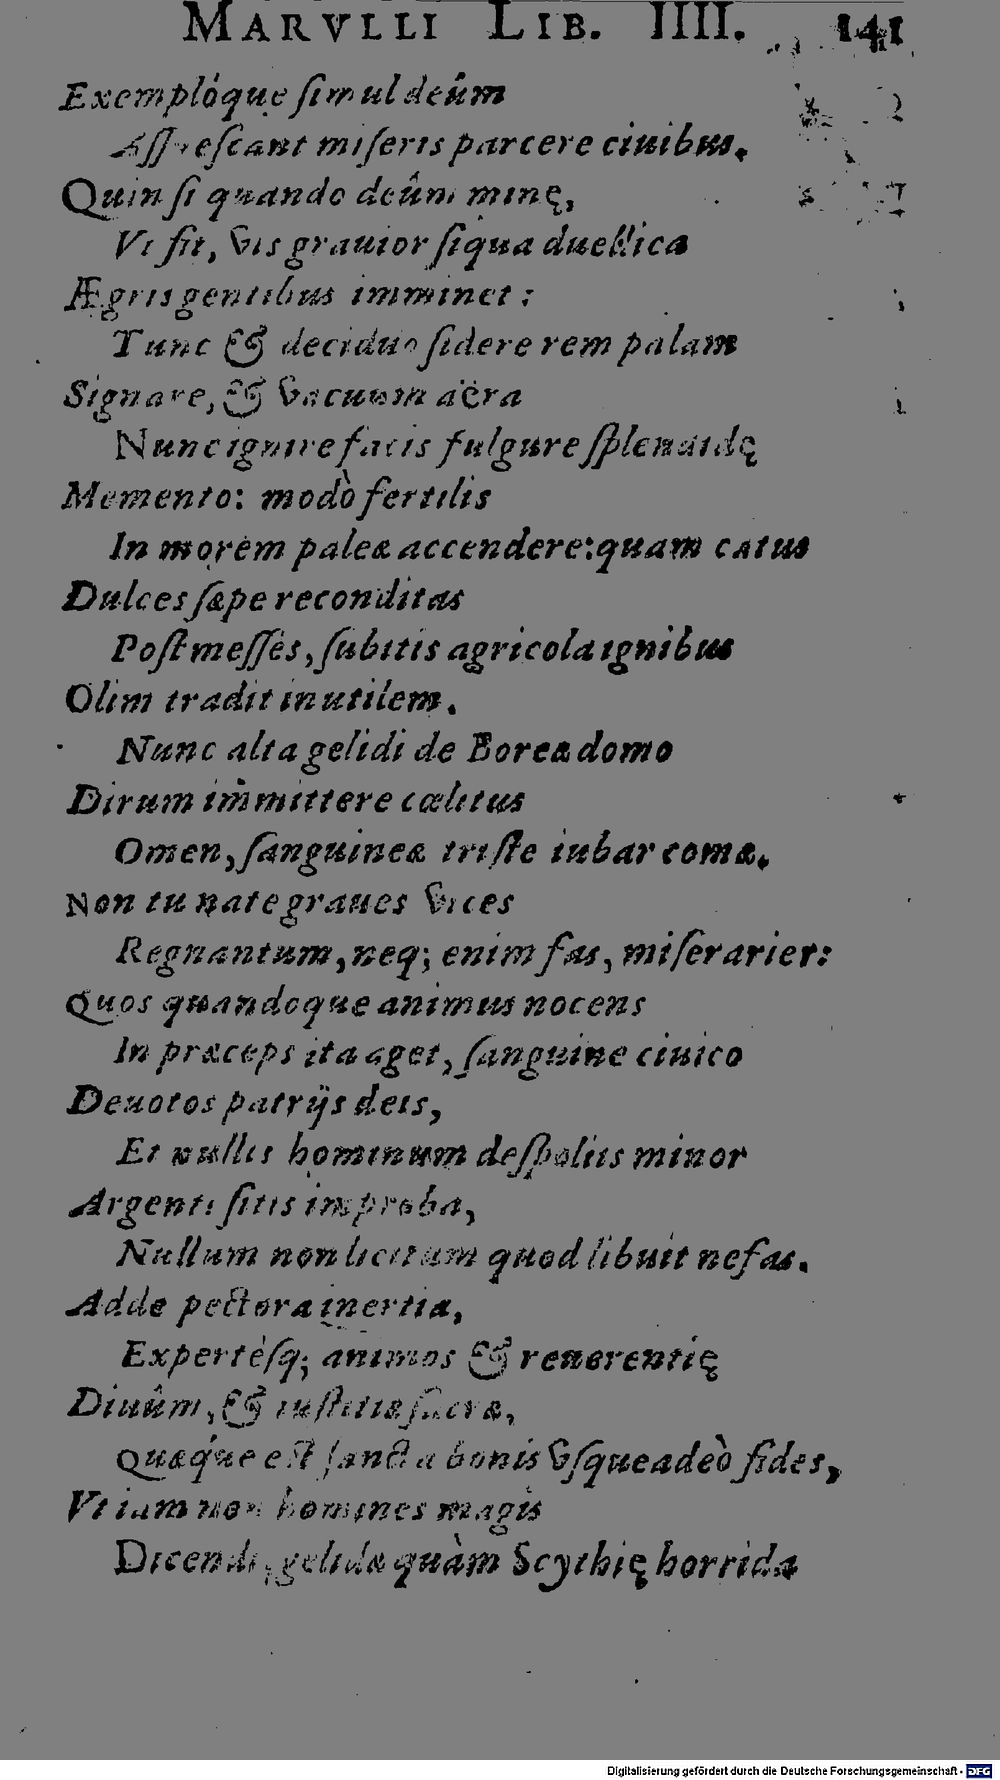 MARVLLI LIB. IIII. 141
Exemplóque ſimul deûm
Aſſueſcant miſeris parcere ciuibus.
Quin ſi quando deûm minę,
Vt fit, vis grauior ſiqua duellica
Ægris gentibus imminet:
Tunc & deciduo ſidere rem palam
Signare, & vacuum aëra
Nunc ignire facis fulgure ſplendidę
Memento: modò fertilis
In morem paleæ accendere: quam catus
Dulces ſæpe reconditas
Poſt meſſes, ſubitis agricola ignibus
Olim tradit inutilem.
Nunc alta gelidi de Boreæ domo
Dirum immittere cœlitus
Omen, ſanguineæ triſte iubar comæ.
Non tu nate graues vices
Regnantum, neq; enim fas, miſerarier:
Quos quandoque animus nocens
In præceps ita aget, ſanguine ciuico
Deuotos patrijs deis,
Et nullis hominum deſpoliis minor
Argenti ſitis improba,
Nullum non licitum quod libuit nefas.
Adde pectora inertia,
Expertèſq; animos & reuerentię
Diuûm, & iuſtitiæ ſacræ,
Quæque eſt ſancta bonis vſqueadeò fides,
Vt iam non homines magis
Dicendi, gelidæ quàm Scythię horrida
Digitalisierung gefördert durch die Deutsche Forschungsgemeinschaft - DFG